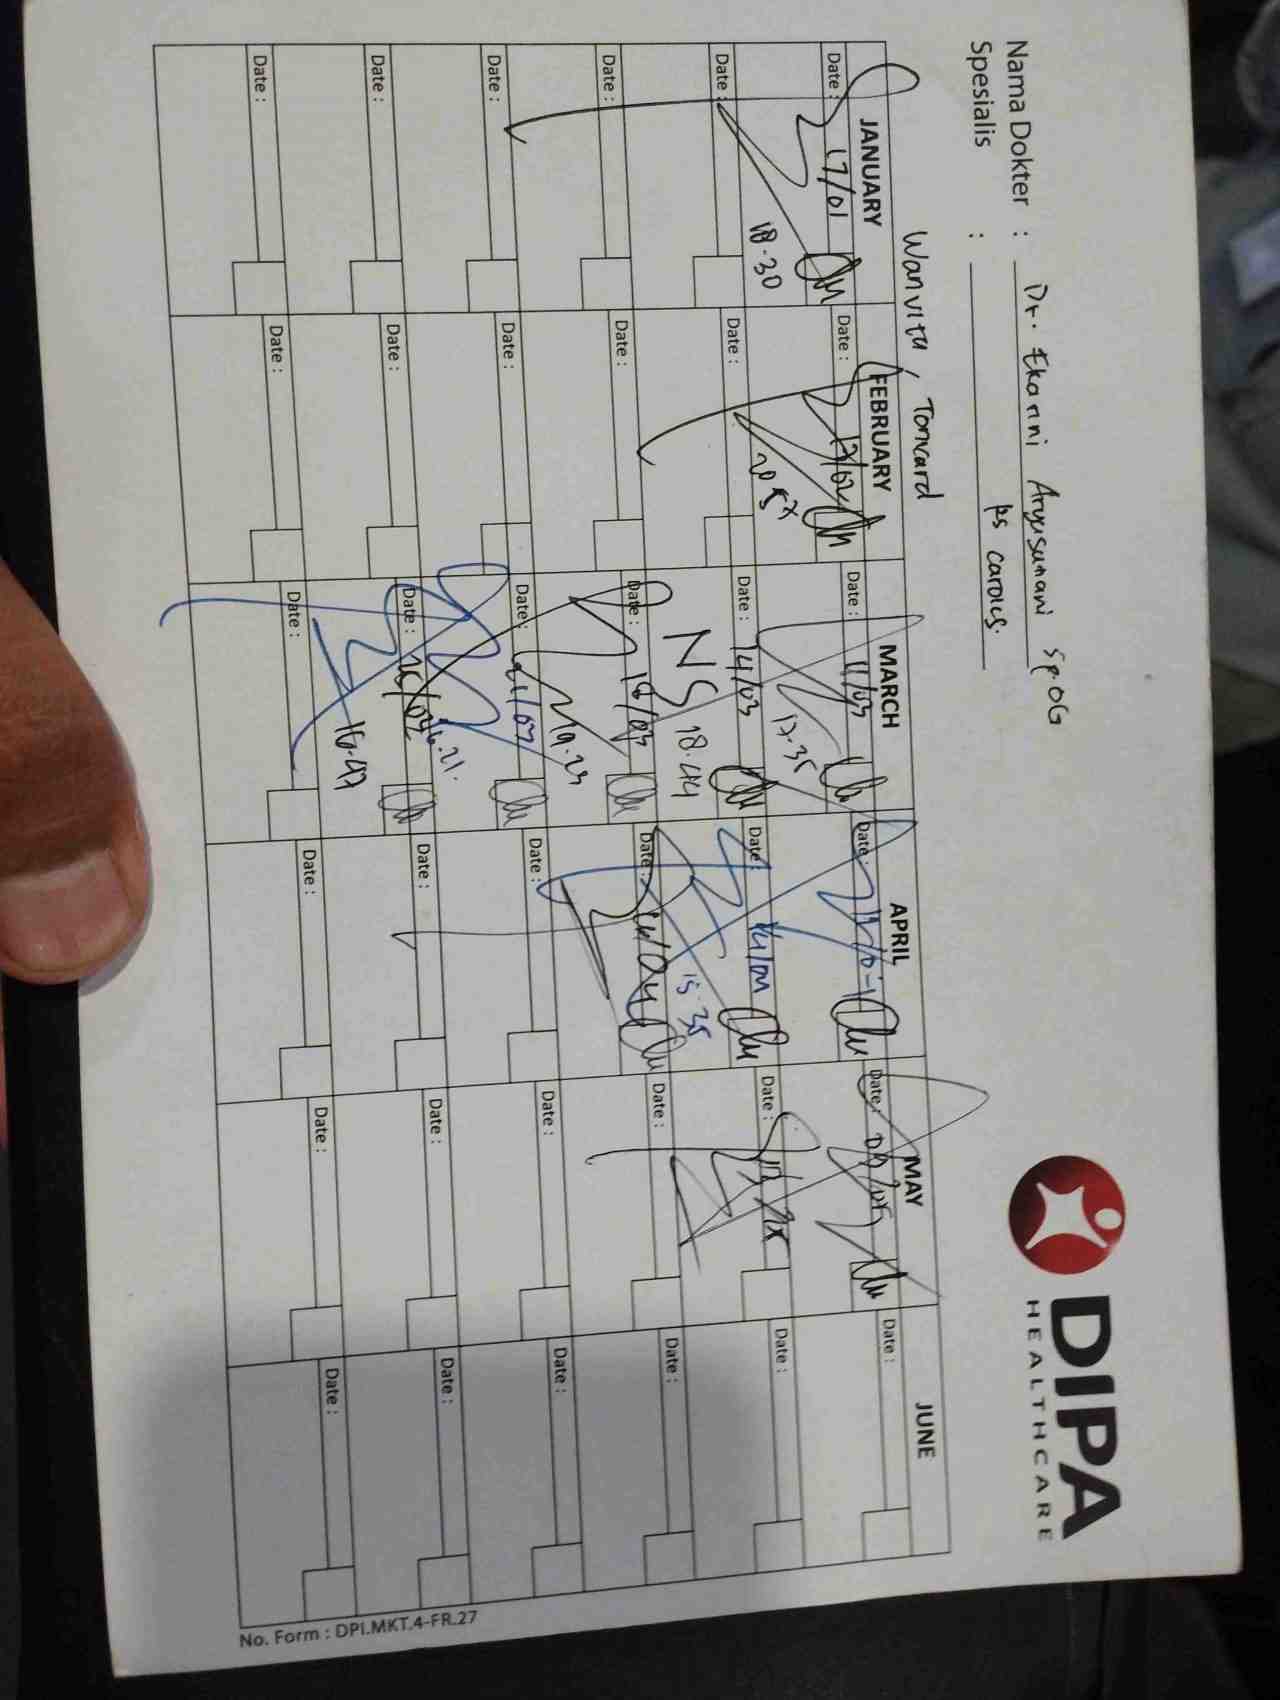 Nama Dokter : Dr. Ekarini Aryasatiani Sp.OG
Spesialis : ps carolus.
DIPA
HEALTHCARE
JANUARY FEBRUARY MARCH APRIL MAY JUNE
Date : 17/01 Date : 17/02 Date : 11/03 Date : Date : 09/05 Date :
18.30 20.57 17.35
Date : Date : Date : 14/03 Date : 14/04 Date : Date :
NS 18.44 15.35
Date : Date : Date : 18/03 Date : Date : Date :
19.23
Date : Date : Date : 21/03 Date : Date : Date :
Date : Date : Date : Date : Date : Date :
16.47
Date : Date : Date : Date : Date : Date :
No. Form : DPI.MKT.4-FR.27